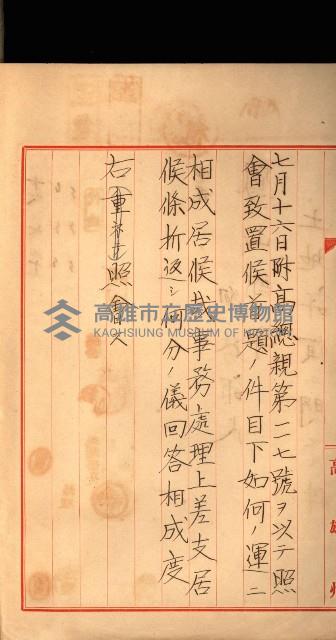 七月十六日附高總親第二七號ヲ以テ照
會致置候首題ノ件目下如何ノ運ニ
相成居候哉事務處理上差支居
候條折返シ何分ノ儀回答相成度
右重ネテ照會ス
高雄州
高雄市立歷史博物館
KAOHSIUNG MUSEUM OF HISTORY